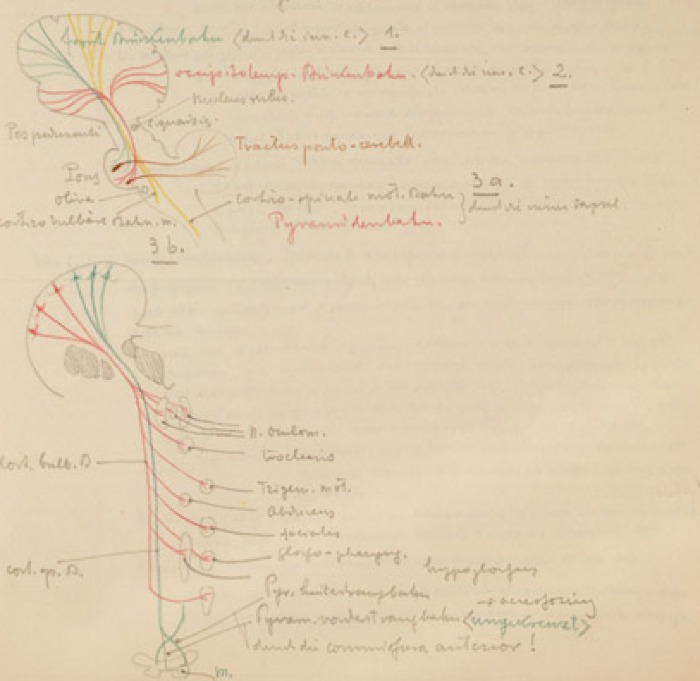 front Brückenbahn <durch die inn. C.> 1.
occip. tolemp. Brückenbahn. <durch die inn. C.> 2.
nucleus ruber.
Pes pedunculi
Tractus ponto-cerebell.
Pons
oliva
3a.
cortico-spinale mot. Bahn
durch die innere Kapsel
cortico bulbäre Bahn. m.
Pyramidenbahn.
3b.
n. oculom.
trochearis
cort. bulb. B
Trigem. mot.
abducens
facialis
glosso-pharyng.
cort. sp. B.
hypoglossus
Pyr. hinterstrangbahn
Pyram. vorderstrangbahn <ungekreuzt>
durch die commissura anterior!
m.